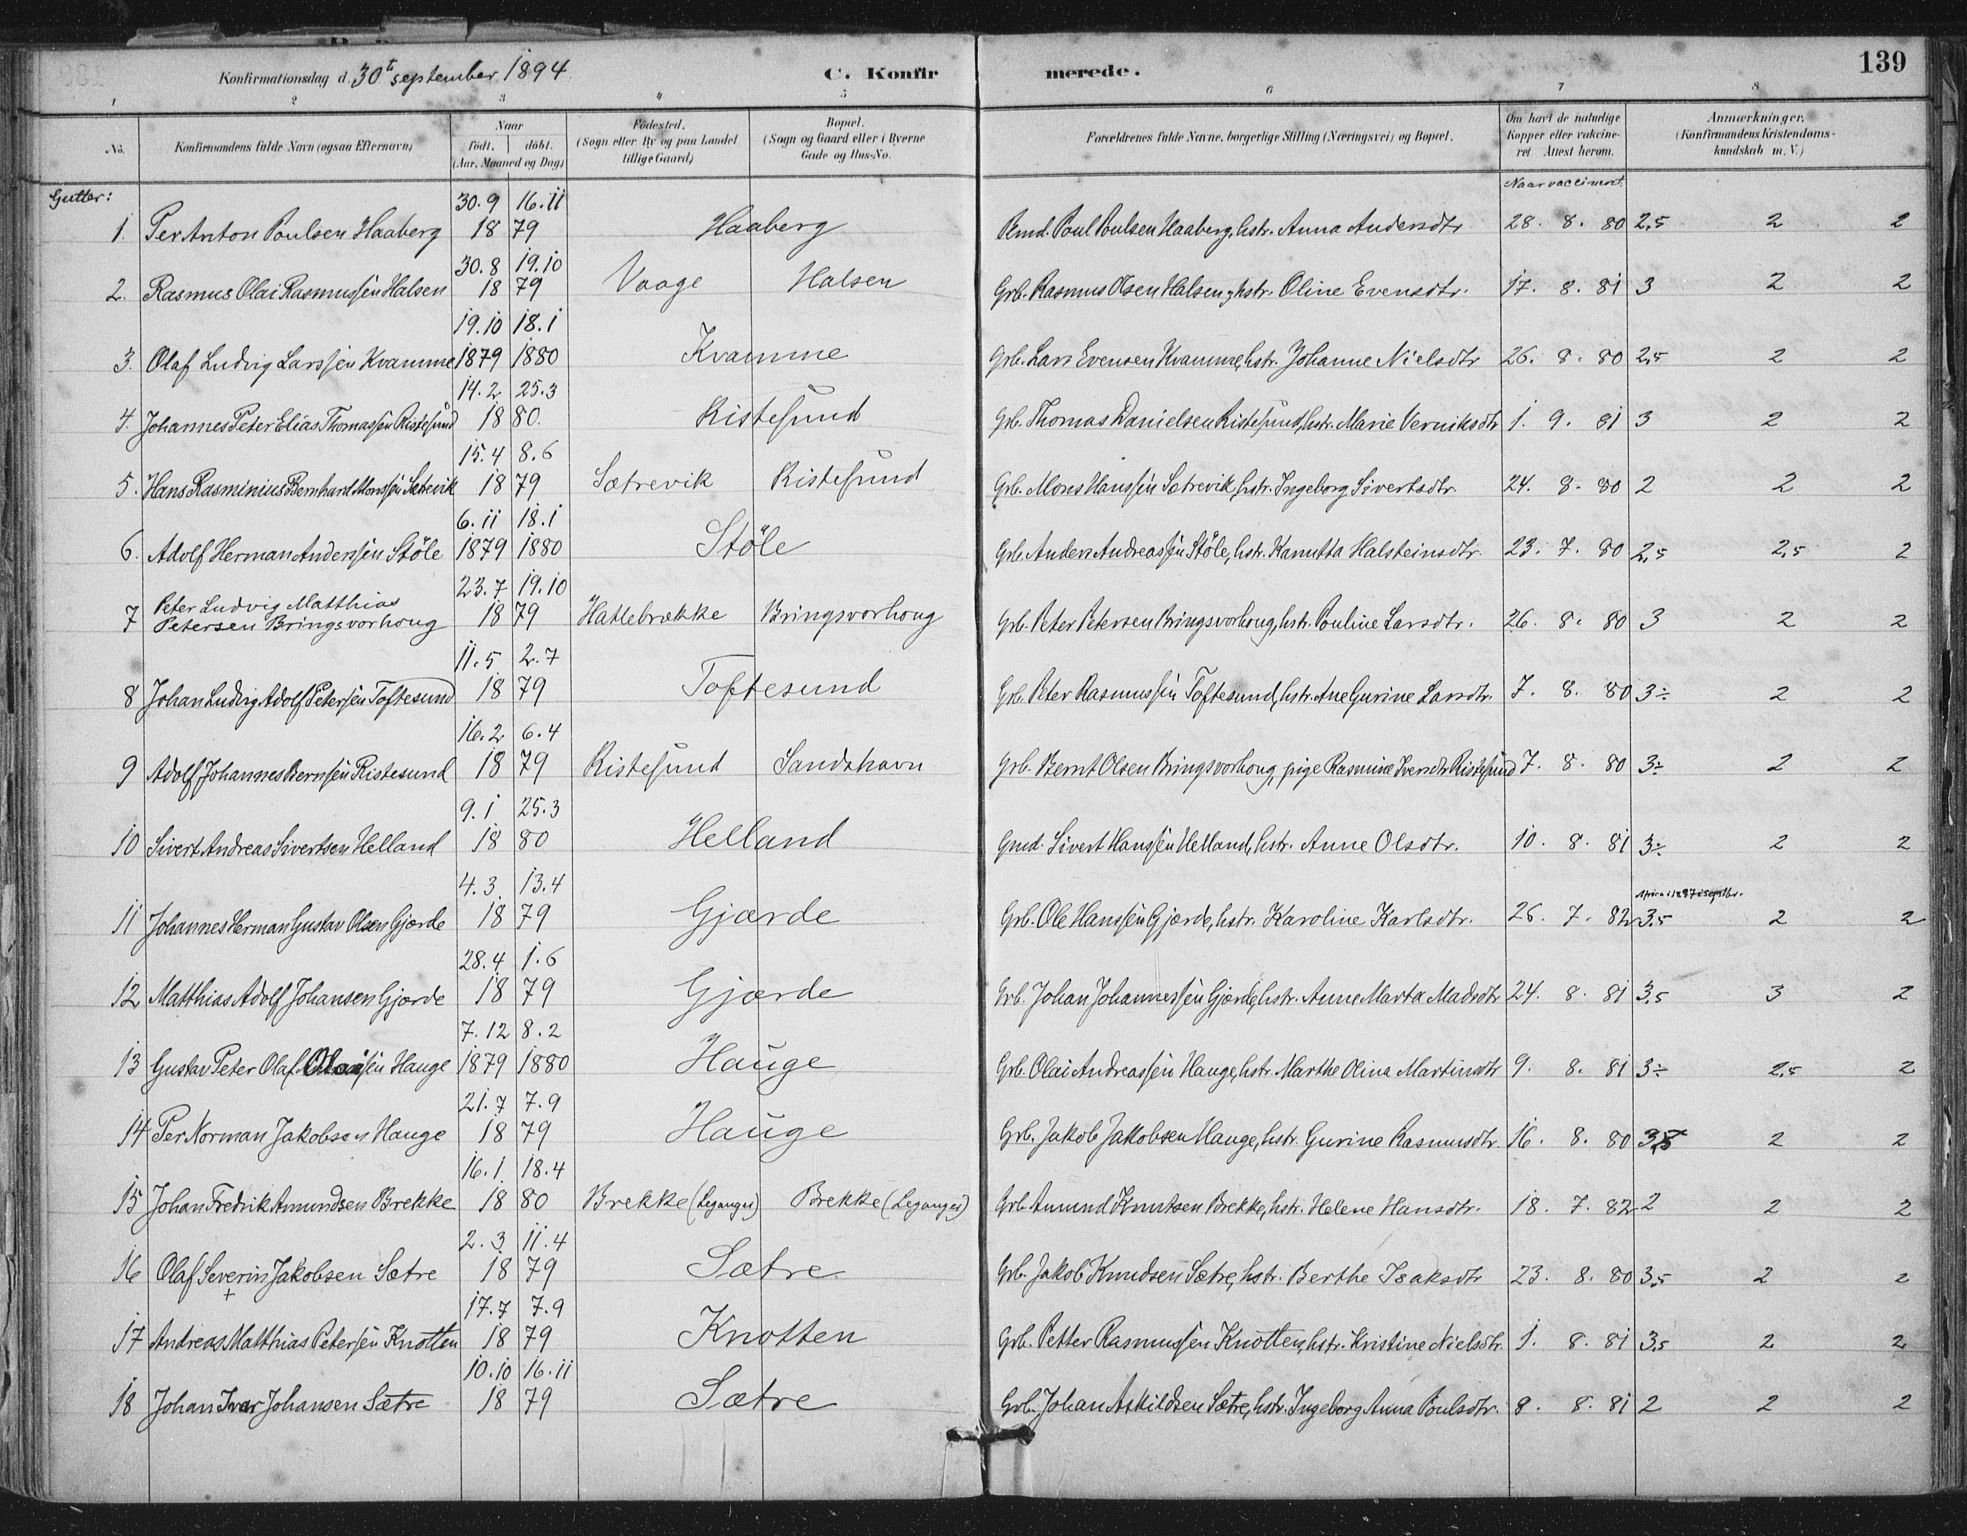 139
Konfirmationsdag d. 30te september 1894. C. Konfirmerede.
1 2 3 4 5 6 7 8
No. Konfirmandens fulde Navn (ogsaa Efternavn) Naar født. døbt. (Aar, Maaned og Dag) Fødested. (Sogn eller By og paa Landet tillige Gaard) Bopæl. (Sogn og Gaard eller i Byerne Gade og Hus-No. Forældrenes fulde Navne, borgerlige Stilling (Næringsvei) og Bopæl. Om havt de naturlige Kopper eller vaccineret. Attest herom. Anmærkninger. (Konfirmandens Kristendomskundskab m. V.)
Gutter: Naar vaccineret.
30.9 16.11
1. Per Anton Poulsen Haaberg 18 79 Haaberg Poul Poulsen Haaberg, hstr. Anna Andersdtr 28. 8. 80 2,5 2 2
30.8 19.10
2. Rasmus Olai Rasmussen Halsen 18 79 Vaage Halsen Grb. Rasmus Olsen Halsen, hstr. Oline Evensdtr. 17. 8. 81 3 2 2
19.10 18.1
3. Olaf Ludvig Larssen Kvamme 1879 1880 Kvamme Grb. Lars Evensen Kvamme, hstr. Johanne Nielsdtr 26. 8. 80 2,5 2 2
14.2 25.3
4. Johannes Peter Elias Thomassen Ristesund 18 80. Ristesund Grb. Thomas Danielsen Ristesund, hstr. Marie Verniksdtr 1. 9. 81 3 2 2
15.4 8.6
5. Hans Rasminius Bernhard Monssen Sætrevik 18 79 Sætrevik Ristesund Grb. Mons Hanssen Sætrevik, hstr. Ingeborg Sivertsdtr. 24. 8. 80 2 2 2
6.11 18.1
6. Adolf Herman Anderssen Støle 1879 1880 Støle Grb. Anders Andreassen Støle, hstr. Kanutta Halsteinsdtr. 23. 7. 80 2,5 2,5 2
23.7 19.10
7 Peter Ludvig Matthias Petersen Bringsvorhoug 18 79 Hattebrække Bringsvorhoug Grb. Peter Petersen Bringsvorhoug, hstr. Pouline Larsdtr. 26. 8. 80 3 2 2
11.5 2.7
8 Johan Ludvig Adolf Petersen Toftesund 18 79 Toftesund Grb. Peter Rasmussen Toftesund, hstr. Ane Gurine Larsdtr. 7. 8. 80 3÷ 2 2
16.2 6.4
9 Adolf Johannes Bernsen Ristesund 18 79 Ristesund Sandshavn Grb. Bernt Olsen Bringsvorhoug, pige Rasmine Iversdtr Ristesund 7. 8. 80 3÷ 2 2
9.1 25.3
10 Sivert Andreas Sivertsen Helland 18 80 Helland Gmd. Sivert Hanssen Helland, hstr. Anne Olsdtr. 10. 8. 81 3÷ 2 2
4.3 13.4
11 Johannes Herman Gustav Olsen Gjærde 18 79 Gjærde Grb. Ole Hanssen Gjærde, hstr. Karoline Karlsdtr. 26. 7. 82 3,5 2 2
28.4 1.6
12 Matthias Adolf Johansen Gjærde 18 79 Gjærde Grb. Johan Johannessen Gjærde, hstr. Anne Marta Madsdtr 24. 8. 81 3,5 3 2
7.12 8.2
13 Gustav Peter Olaf Olaisen Hauge 1879 1880 Hauge Grb. Olai Andreassen Hauge, hstr. Marthe Olina Martinsdtr 9. 8. 81 3÷ 2,5 2
21.7 7.9
14 Per Norman Jakobsen Hauge 18 79 Hauge Grb. Jakob Jakobsen Hauge, hstr. Gurine Rasmusdtr. 16. 8. 80 3,5 2 2
16.1 18.4
15 Johan Fredrik Amundsen Brekke 18 80 Brekke (Leganger) Brekke (Leganger) Grb. Amund Knutsen Brekke, hstr. Helene Hansdtr. 18. 7. 82 2 2 2
2.3 11.4
16 Olaf Severin Jakobsen Sætre 18 79 Sætre Grb. Jakob Knudsen Sætre, hstr. Berthe Isaksdtr 23. 8. 80 3,5 2 2
+ 17.7 7.9
17 Andreas Matthias Petersen Knotten 18 79 Knotten Grb. Petter Rasmussen Knotten, hstr. Kristine Nielsdtr. 1. 8. 81 3,5 2 2
10.10 16.11
18 Johan Ivar Johansen Sætre 18 79 Sætre Grb. Johan Askildsen Sætre, hstr. Ingeborg Anna Poulsdtr. 8. 8. 81 2 2 2